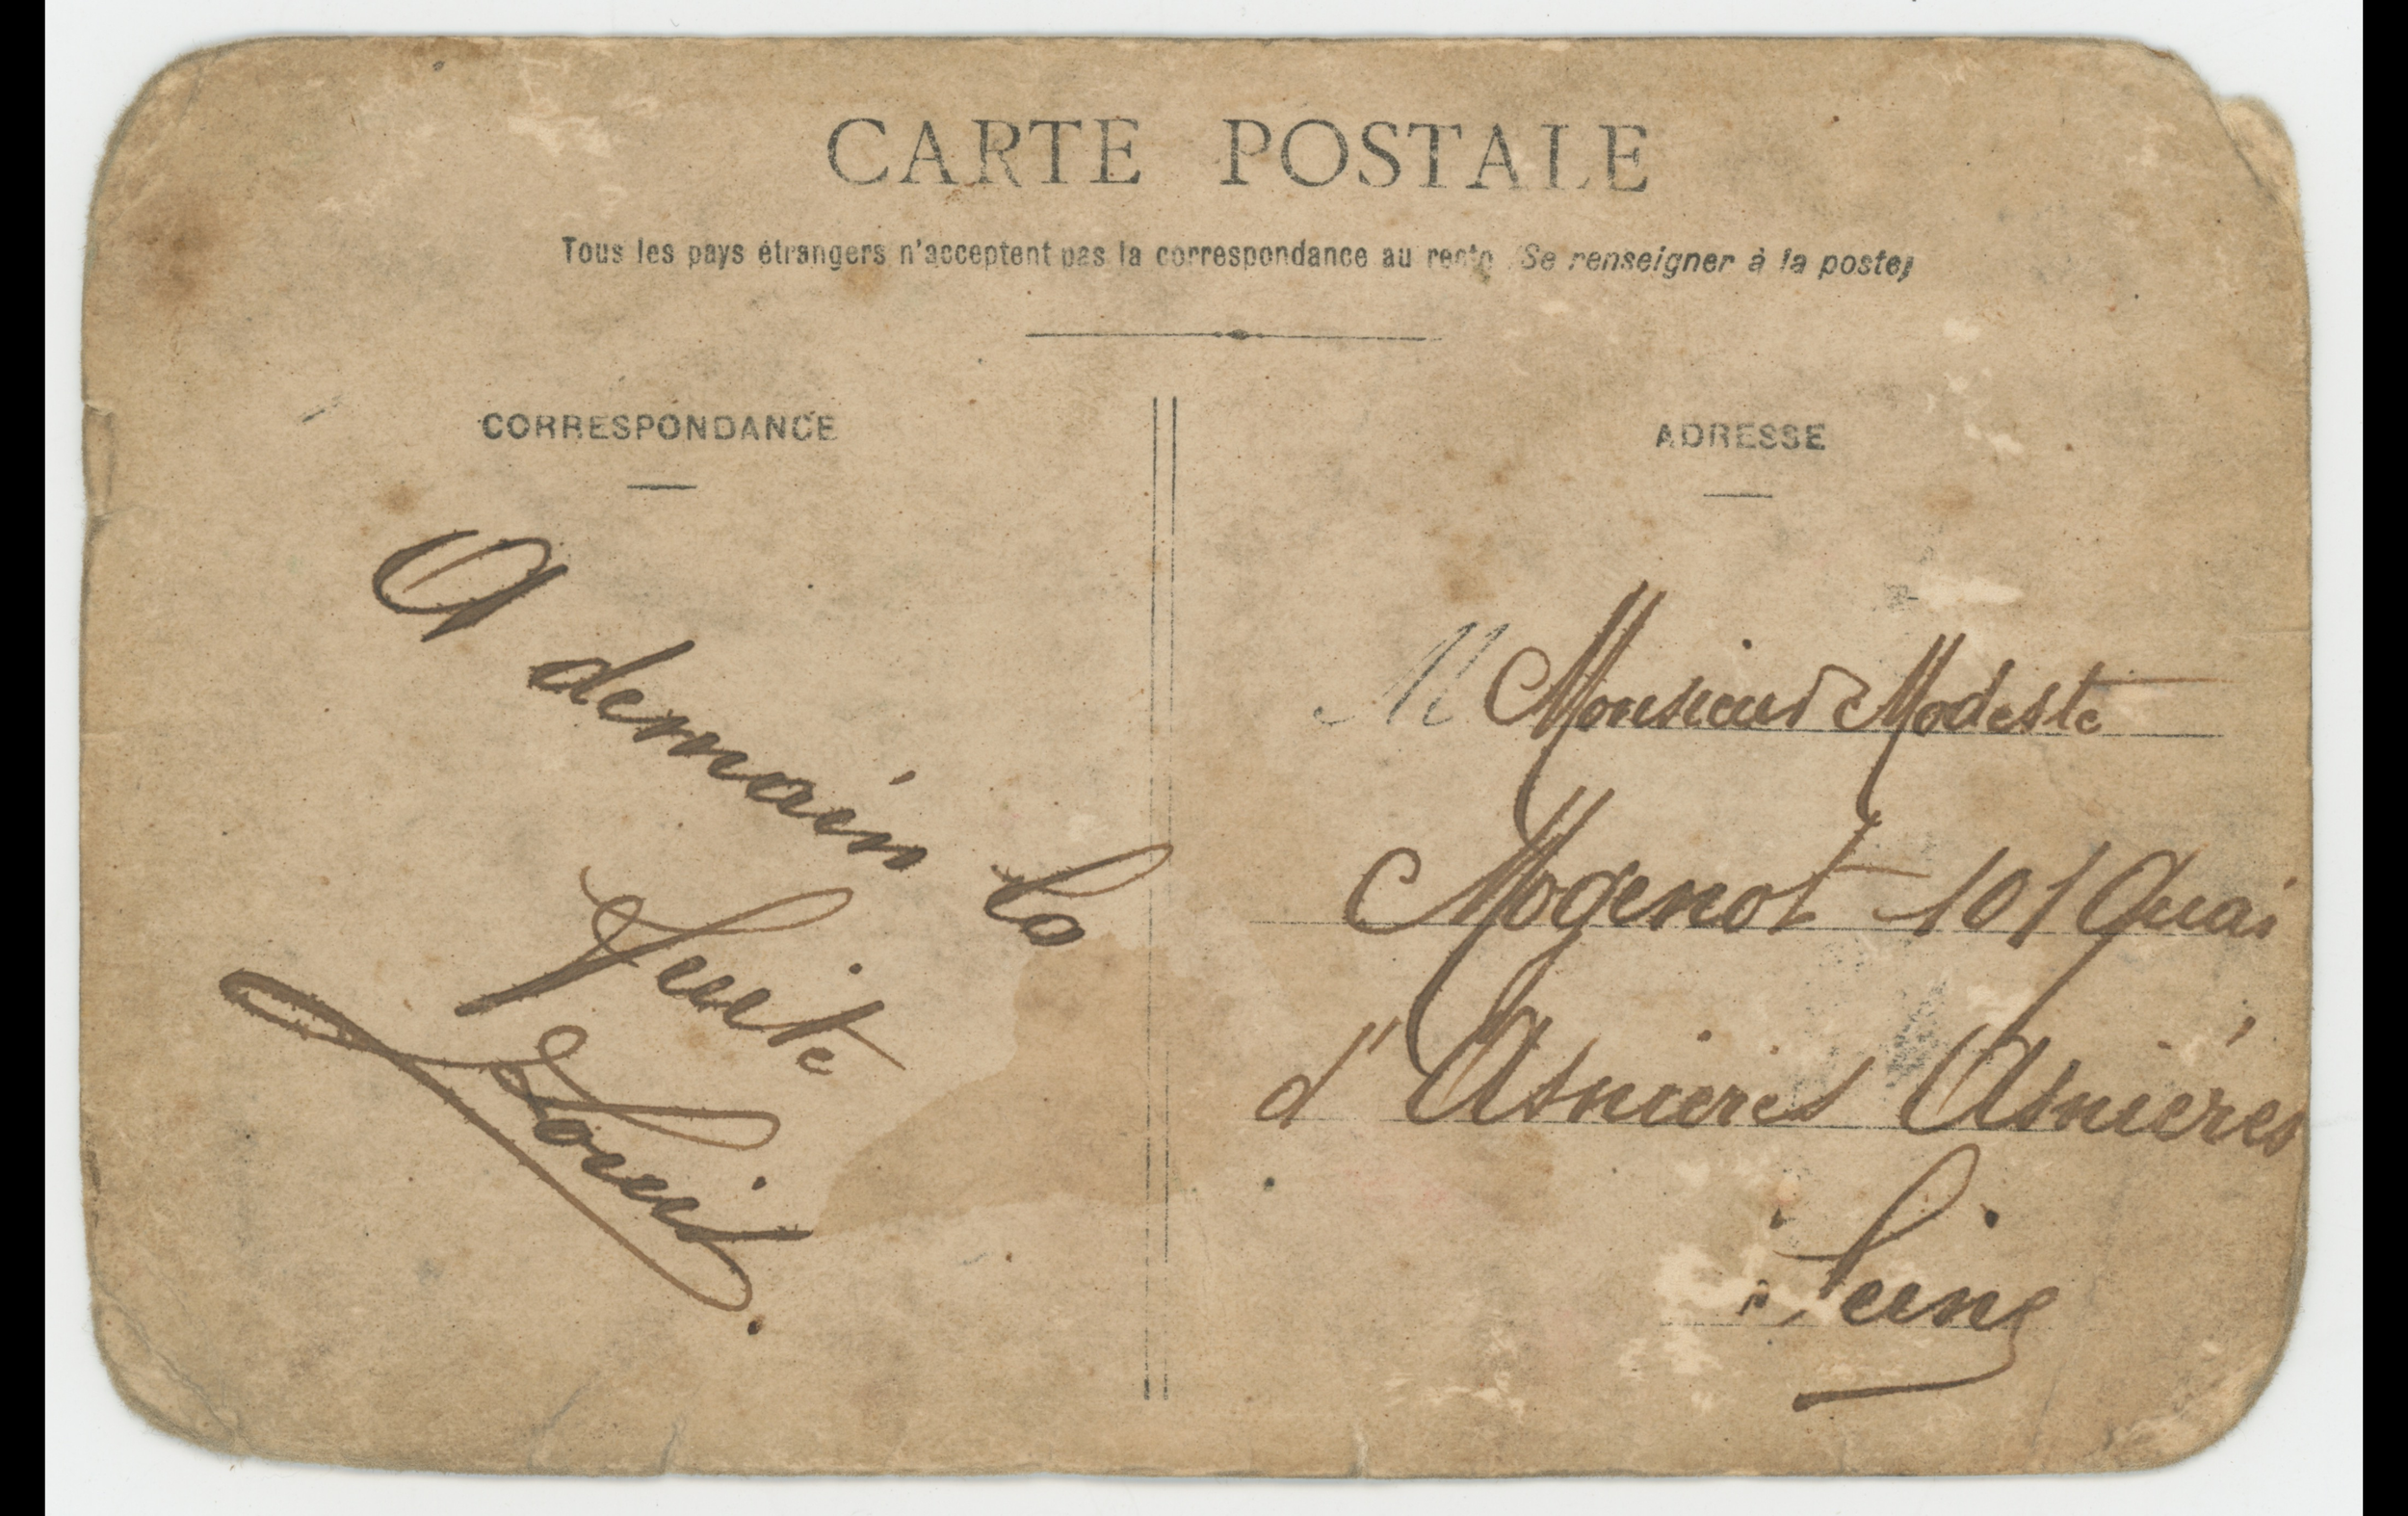 CARTE POSTALE
Tous les pays étrangers n'acceptent pas la correspondance au recto (Se renseigner à la poste)
CORRESPONDANCE
A demain la
Suite
Louis.
ADRESSE
M Monsieur Modeste
Mogenot 101 Quai
d'Asnieres Asnières
Seine